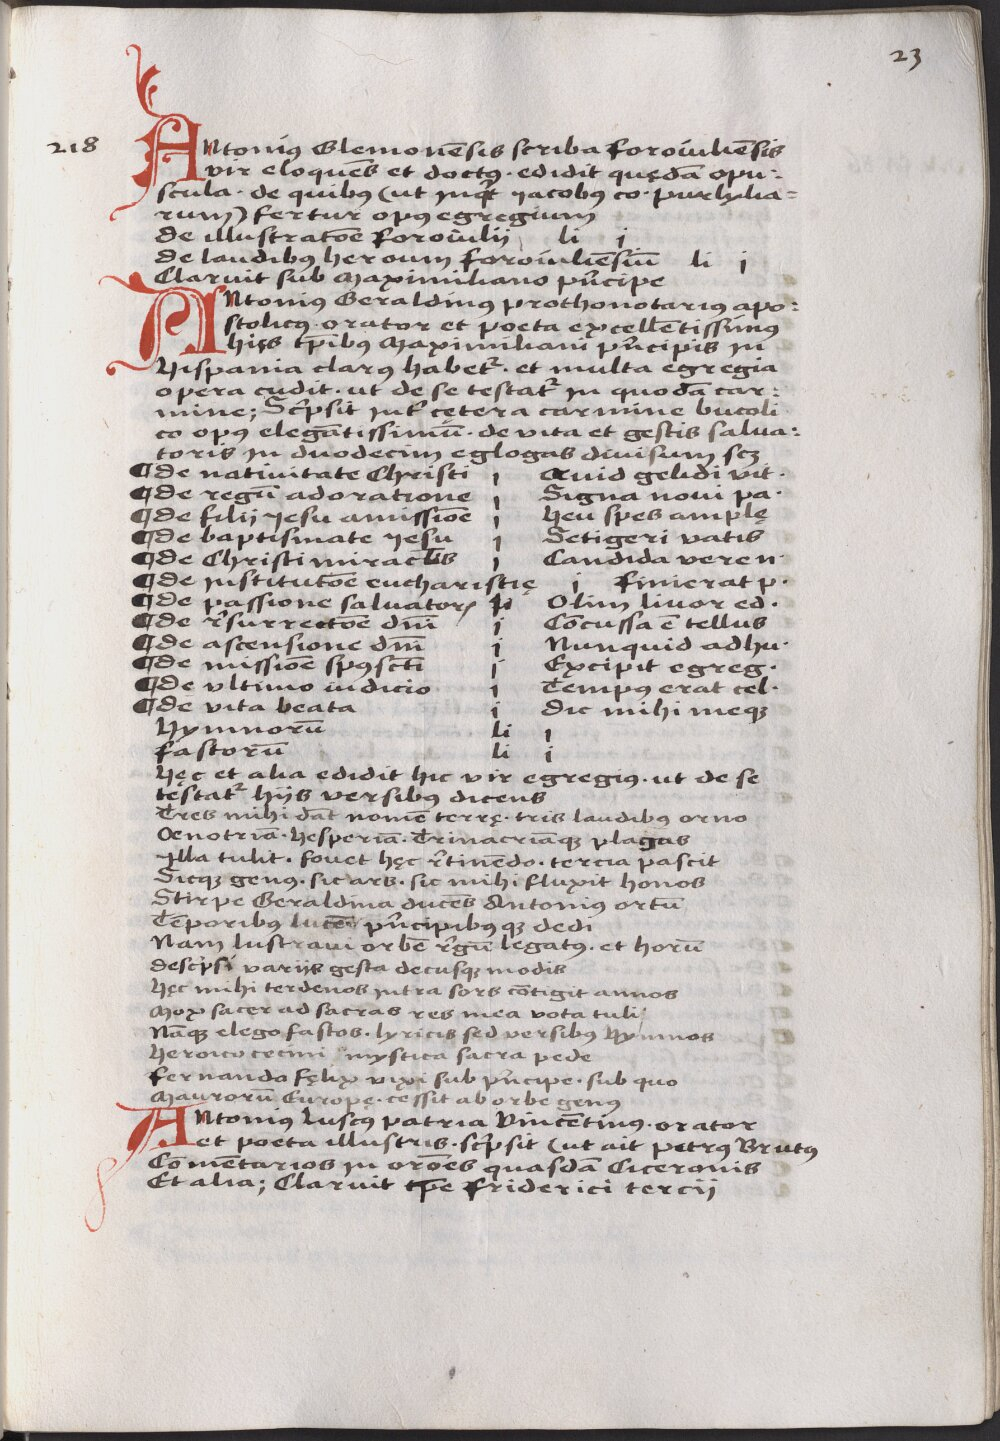 23
218
Antoniꝰ Glemonēsis scriba foroiuliēsis
vir eloquēs et doctꝰ · edidit quędā opu:
scula · de quibꝰ (ut inq̃t Iacobꝰ co · purlilia=
rum) fertur opꝰ egregium
de illustratōe foroiulii li i
de laudibꝰ heroum foroiuliēsiū li i
Claruit sub Maximiliano pñcipe
Antoniꝰ Geraldinꝰ prothonotariꝰ apo:
stolicꝰ · orator et poeta excellētissimꝰ
hijs tp̄ibꝰ Maximiliani pñcipis in
hispania clarꝰ habet᷑ · et multa egregia
opera cudit · ut de se testat᷑ in quodā car:
mine; Sc̃psit int̉ cętera carmine bucoli
co opꝰ elegātissimū · de vita et gestis salua:
toris in duodecim eglogas diuisum scꝫ
¶de natiuitate Christi i Quid gelidi vit·
¶de regū adoratione i Signa noui pa·
¶de filij Iesu amissiōe i Heu spes amplę
¶de baptismate Iesu i Setigeri vatis
¶de Christi miracl̄is i Candida veren·
¶de institutōe eucharistię i finierat p·
¶de passione saluatorꝭ i Olim liuor ed·
¶de r̉surrectōe dn̄i i Cōcussa ē tellus
¶de ascensione dn̄i i Nunquid adhu·
¶de missiōe spꝰscti i Excipit egreg·
¶de vltimo iudicio i Tempꝰ erat cel·
¶de vita beata i dic mihi meqꝫ
Hymnorū li i
fastorū li i
Hęc et alia edidit hic vir egregiꝰ · ut de se
testat᷑ hijs versibꝰ dicens
Tres mihi dāt nomē terrę · tris laudibꝰ orno
Oenotriā · Hesperiā · Trinacriāqꝫ plagas
Illa tulit · fouet hęc r̉tinēdo · tercia pascit
Sicqꝫ genꝰ · sic ars · sic mihi fluxit honos
Stirpe Geraldina ducēs Antoniꝰ ortū
Tēporibꝰ lucē pñcipibꝰqꝫ dedi
Nam lustraui orbē r̉gū legatꝰ · et horū
descp̃si varijs gesta decusqꝫ modis
Hęc mihi terdenos intra sors cōtigit annos
Mox sacer ad sacras res mea vota tuli
Nāqꝫ elego fastos · lyricis sed versibꝰ hymnos
Heroico cecini mystica sacra pede
fernando fęlix vixi sub pñcipe · sub quo
Maurorū Europę · cessit ab orbe genꝰ
Antoniꝰ Luscꝰ patria Vincētinꝰ · orator
et poeta illustris · sc̃psit (ut ait petrꝰ Brutꝰ
Cōmētarios in orōes quasdā Ciceronis
Et alia; Claruit tp̄e friderici tercij